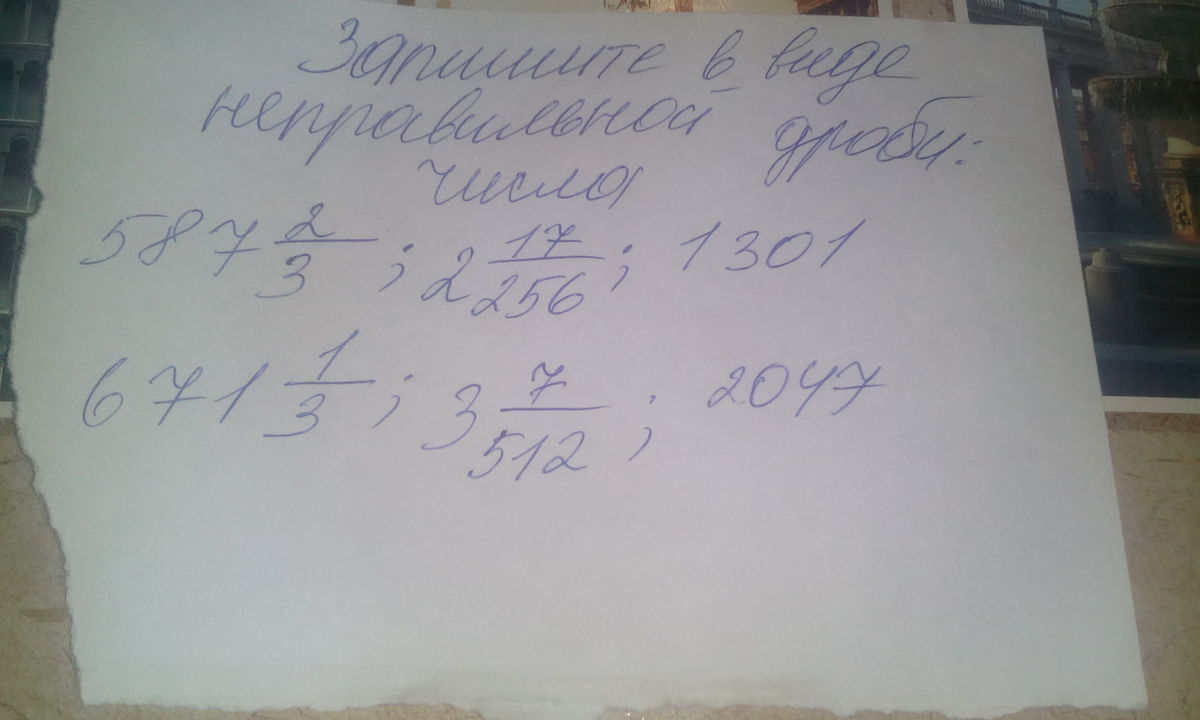 Запишите в виде
неправильной дроби:
числа
587 2/3 ; 2 17/256 ; 1301
671 1/3 ; 3 7/512 ; 2047